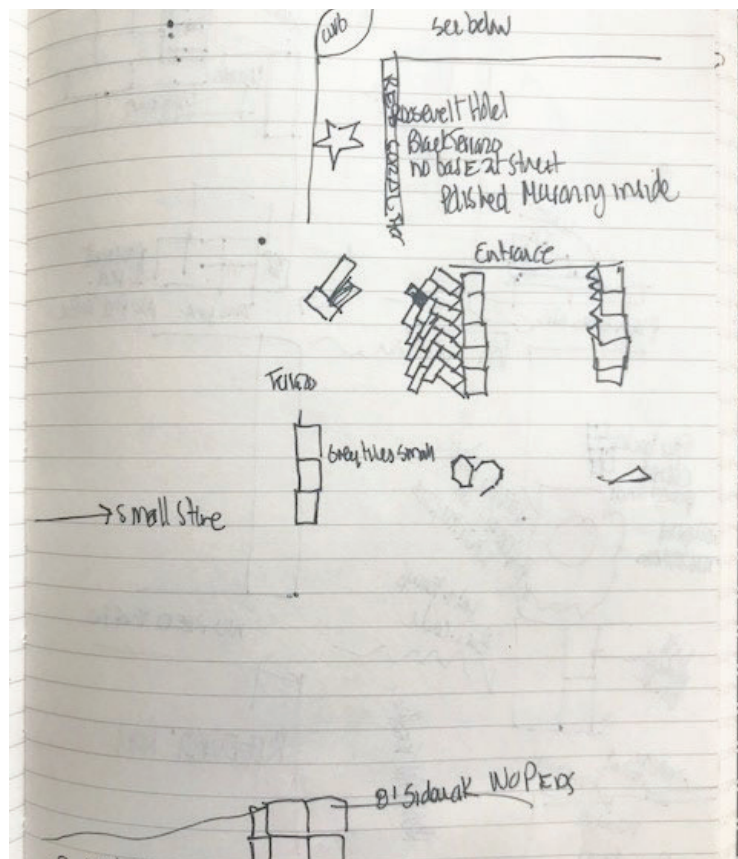 curb
see below
Roosevelt Hotel
Black Terrazzo
no base at street
Polished Masonry inside
Entrance
Grey tiles small
small store
8' Sidewak